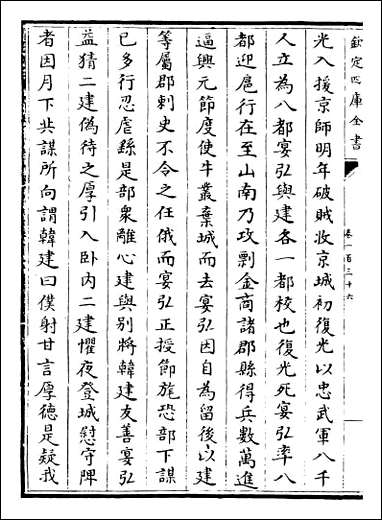 欽定四庫全書
卷一百三十六
光入援京師明年破賊收京城初復光以忠武軍八千
人立為八都晏弘與建各一都校也復光死晏弘率八
都迎扈行在至山南乃攻剽金商諸郡縣得兵數萬進
逼興元節度使牛叢棄城而去晏弘因自為留後以建
等屬郡刺史不令之任俄而晏弘正授節旄恐部下謀
已多行忍虐繇是部衆離心建與别將韓建友善晏弘
益猜二建偽待之厚引入卧内二建懼夜登城慰守陴
者因月下共謀所向謂韓建曰僕射甘言厚德是疑我